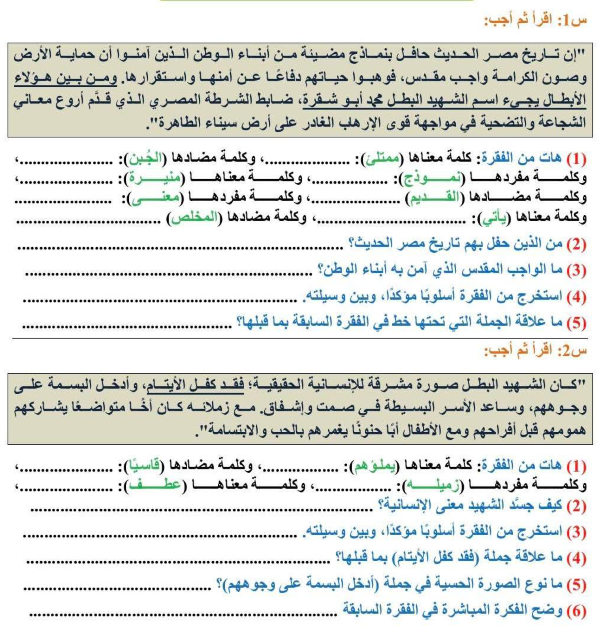 س1: اقرأ ثم أجب:
"إن تاريخ مصر الحديث حافل بنماذج مضيئة من أبناء الوطن الذين آمنوا أن حماية الأرض
وصون الكرامة واجب مقدس، فوهبوا حياتهم دفاعًا عن أمنها واستقرارها. ومن بين هؤلاء
الأبطال يجيء اسم الشهيد البطل محمد أبو شقرة، ضابط الشرطة المصري الذي قدَّم أروع معاني
الشجاعة والتضحية في مواجهة قوى الإرهاب الغادر على أرض سيناء الطاهرة".
(1) هات من الفقرة: كلمة معناها (ممتلئ): ....................، وكلمة مضادها (الجُبن): ......................،
وكلمة مفردها (نموذج): ....................، وكلمة معناها (منيرة): ......................،
وكلمة مضادها (القديم) ....................، وكلمة مفردها (معنى): ......................
وكلمة معناها (يأتي): ....................................، وكلمة مضادها (المخلص) ..................................
(2) من الذين حفل بهم تاريخ مصر الحديث؟ ..............................................................
(3) ما الواجب المقدس الذي آمن به أبناء الوطن؟ ..............................................................
(4) استخرج من الفقرة أسلوبًا مؤكدًا، وبين وسيلته. ..............................................................
(5) ما علاقة الجملة التي تحتها خط في الفقرة السابقة بما قبلها؟ ..................................................
س2: اقرأ ثم أجب:
"كان الشهيد البطل صورة مشرقة للإنسانية الحقيقية؛ فقد كفل الأيتام، وأدخل البسمة على
وجوههم، وساعد الأسر البسيطة في صمت وإشفاق. مع زملائه كان أخًا متواضعًا يشاركهم
همومهم قبل أفراحهم ومع الأطفال أبًا حنونًا يغمرهم بالحب والابتسامة".
(1) هات من الفقرة: كلمة معناها (يملؤهم): ..................، وكلمة مضادها (قاسيًا): ......................،
وكلمة مفردها (زميله): ..................، وكلمة معناها (عطف): ......................،
(2) كيف جسَّد الشهيد معنى الإنسانية؟ ..............................................................
(3) استخرج من الفقرة أسلوبًا مؤكدًا، وبين وسيلته. ..............................................................
(4) ما علاقة جملة (فقد كفل الأيتام) بما قبلها؟ ..............................................................
(5) ما نوع الصورة الحسية في جملة (أدخل البسمة على وجوههم)؟ ..................................................
(6) وضح الفكرة المباشرة في الفقرة السابقة ..............................................................